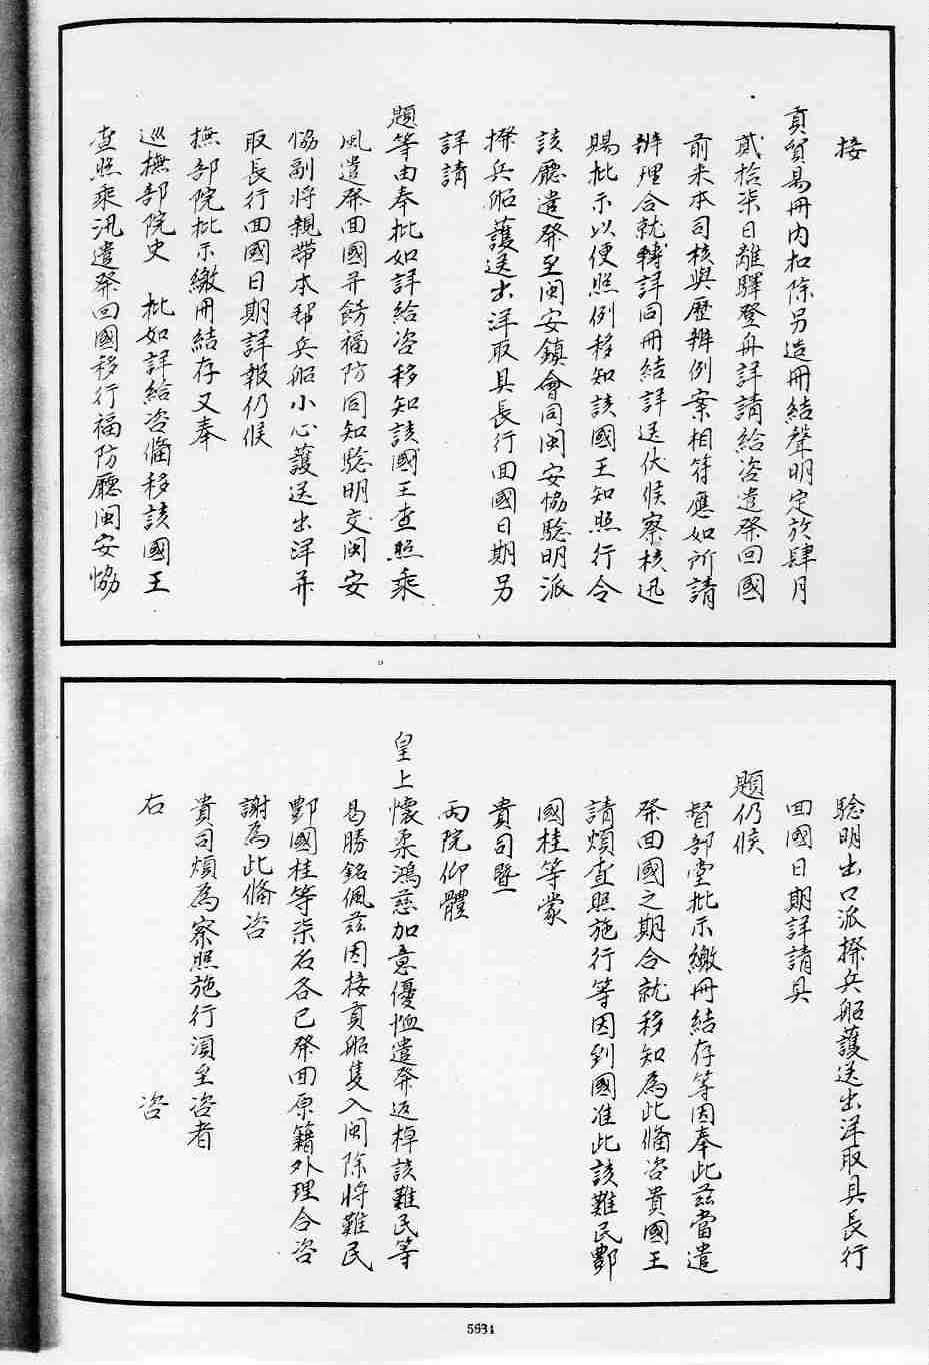 接
貢貿易冊內扣除另造冊結聲明定於肆月
貳拾柒日離驛登舟詳請給咨遣發回國
前来本司核與歷辦例案相符應如所請
辦理合就轉詳同冊結詳送伏候察核迅
賜批示以便照例移知該國王知照行令
該廳遣發至閩安鎮會同閩安協驗明派
撥兵船護送出洋取具長行回國日期另
詳請
題等由奉批如詳給咨移知該國王查照乘
風遣發回國并飭福防同知驗明交閩安
協副將親帶本幫兵船小心護送出洋并
取長行回國日期詳報仍候
撫部院批示繳冊結存又奉
巡撫部院史 批如詳給咨備移該國王
查照乘汛遣發回國移行福防廳閩安協
驗明出口派撥兵船護送出洋取具長行
回國日期詳請具
題仍候
督部堂批示繳冊結存等因奉此茲當遣
發回國之期合就移知為此備咨貴國王
請煩查照施行等因到國准此該難民鄷
國桂等蒙
貴司暨
兩院仰體
皇上懷柔鴻慈加意優恤遣發返棹該難民等
曷勝銘佩茲因接貢船隻入閩除將難民
鄷國桂等柒名各已發回原籍外理合咨
謝為此備咨
貴司煩為察照施行須至咨者
右 咨
5631